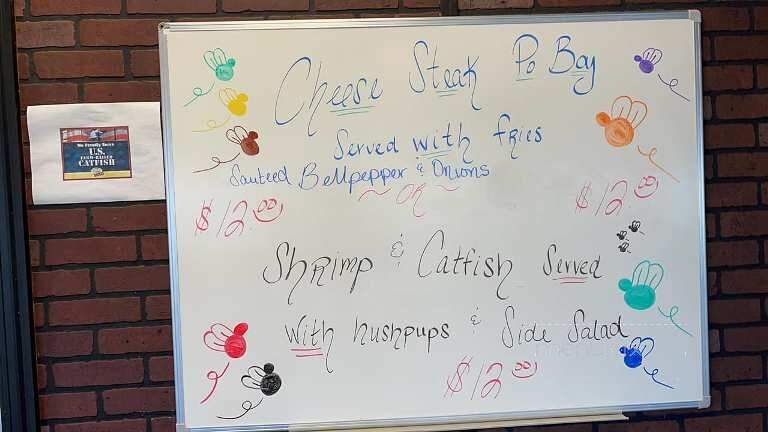 Cheese Steak Po Boy
Served with fries
Sauteed Bellpepper & Onions
~ OR ~
$12.00
$12.00
Shrimp & Catfish Served
with hushpups & Side Salad
$12.00
We Proudly Serve
U.S.
FARM-RAISED
CATFISH